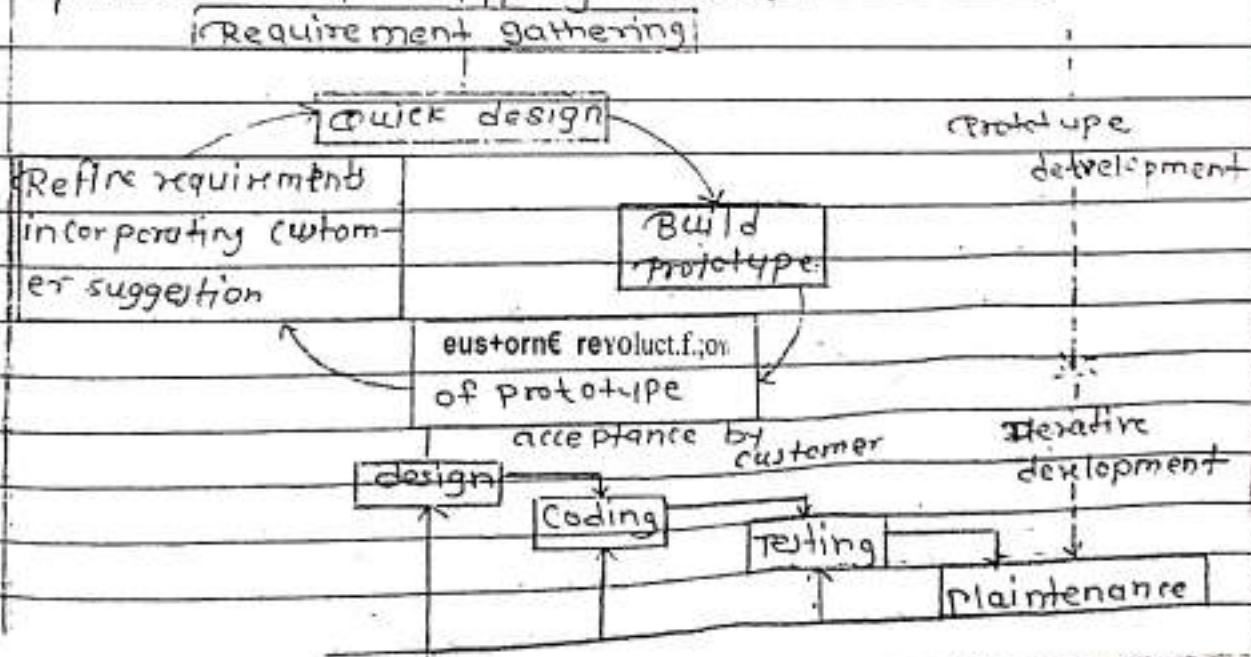 Requirement gathering
Quick design
Prototype
development
Refine requirements
incorporating custom-
er suggestion
Build
prototype
eus+orn€ revoluct.f.;or
of prototype
acceptance by
customer
Iterative
development
design
Coding
Testing
Maintenance